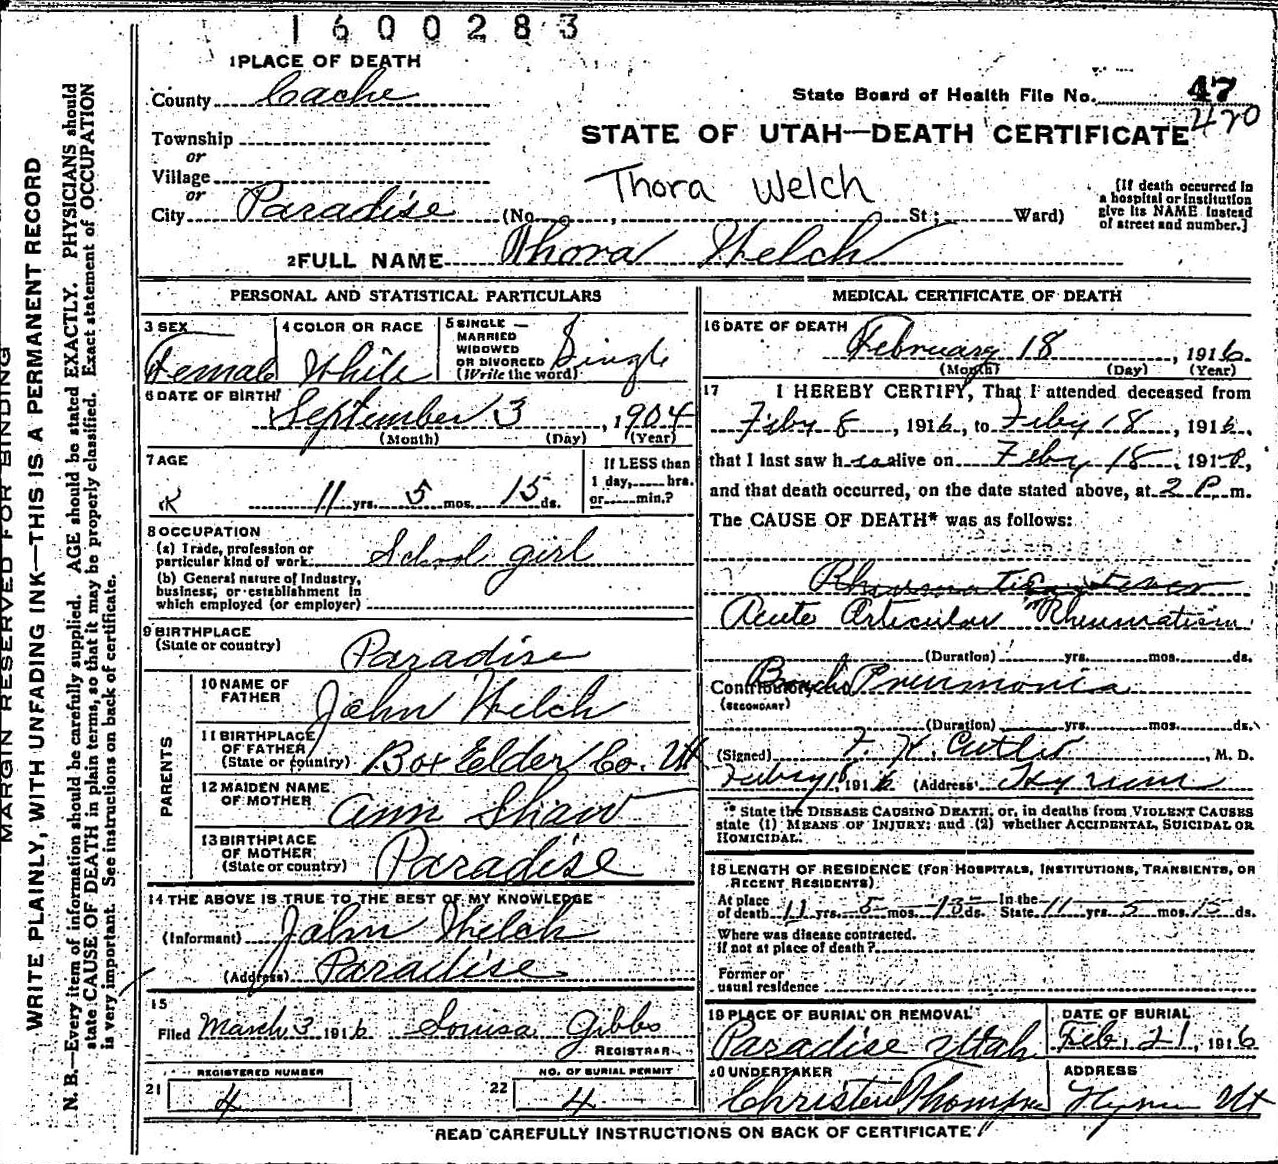 1600283
1 PLACE OF DEATH
County Cache
State Board of Health File No. 47
420
Township
or
Village
or
City Paradise (No. , St.; Ward)
STATE OF UTAH—DEATH CERTIFICATE
Thora Welch
[If death occurred in
a hospital or institution
give its NAME instead
of street and number.]
2 FULL NAME Thora Welch
PERSONAL AND STATISTICAL PARTICULARS
3 SEX
Female
4 COLOR OR RACE
White
5 SINGLE
MARRIED
WIDOWED
OR DIVORCED
(Write the word)
Single
6 DATE OF BIRTH
September 3, 1904
(Month) (Day) (Year)
7 AGE
11 yrs. 5 mos. 15 ds.
If LESS than
1 day, hrs.
or min.?
8 OCCUPATION
(a) Trade, profession or
particular kind of work School girl
(b) General nature of industry,
business, or establishment in
which employed (or employer)
9 BIRTHPLACE
(State or country) Paradise
PARENTS
10 NAME OF
FATHER John Welch
11 BIRTHPLACE
OF FATHER
(State or country) Box Elder Co. Ut
12 MAIDEN NAME
OF MOTHER Ann Shaw
13 BIRTHPLACE
OF MOTHER
(State or country) Paradise
14 THE ABOVE IS TRUE TO THE BEST OF MY KNOWLEDGE
(Informant) John Welch
(Address) Paradise
15
Filed March 3 1916 Louisa Gibbs
REGISTRAR
21 REGISTERED NUMBER
4
22 NO. OF BURIAL PERMIT
4
MEDICAL CERTIFICATE OF DEATH
16 DATE OF DEATH
February 18, 1916
(Month) (Day) (Year)
17 I HEREBY CERTIFY, That I attended deceased from
Feby 8, 1916, to Feby 18, 1916,
that I last saw h alive on Feby 18, 191
and that death occurred, on the date stated above, at 2 P. m.
The CAUSE OF DEATH* was as follows:
Acute Articular Rheumatism
(Duration) yrs. mos. ds.
Contributory Pneumonia
(SECONDARY)
(Duration) yrs. mos. ds.
(Signed) Cutler M. D.
Feby 18, 1916 (Address) Hyrum
* State the DISEASE CAUSING DEATH, or, in deaths from VIOLENT CAUSES
state (1) MEANS OF INJURY; and (2) whether ACCIDENTAL, SUICIDAL OR
HOMICIDAL.
18 LENGTH OF RESIDENCE (FOR HOSPITALS, INSTITUTIONS, TRANSIENTS, OR
RECENT RESIDENTS)
At place
of death 11 yrs. 5 mos. 15 ds. In the
State 11 yrs. 5 mos. 15 ds.
Where was disease contracted.
if not at place of death?
Former or
usual residence
19 PLACE OF BURIAL OR REMOVAL
Paradise Utah
DATE OF BURIAL
Feb. 21, 1916
20 UNDERTAKER
ADDRESS
Hyrum Ut
READ CAREFULLY INSTRUCTIONS ON BACK OF CERTIFICATE
MARGIN RESERVED FOR BINDING
WRITE PLAINLY, WITH UNFADING INK—THIS IS A PERMANENT RECORD
N. B.—Every item of information should be carefully supplied. AGE should be stated EXACTLY. PHYSICIANS should
state CAUSE OF DEATH in plain terms, so that it may be properly classified. Exact statement of OCCUPATION
is very important. See instructions on back of certificate.